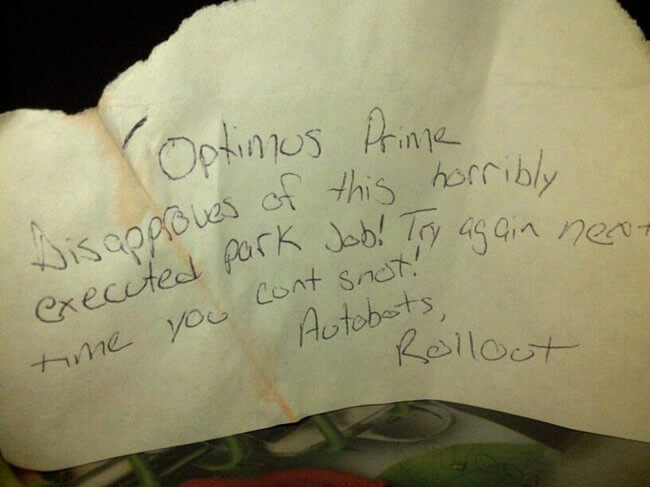 Optimus Prime
Disapproves of this horribly
executed park Job! Try again next
time you cunt snot!
Autobots,
Rollout